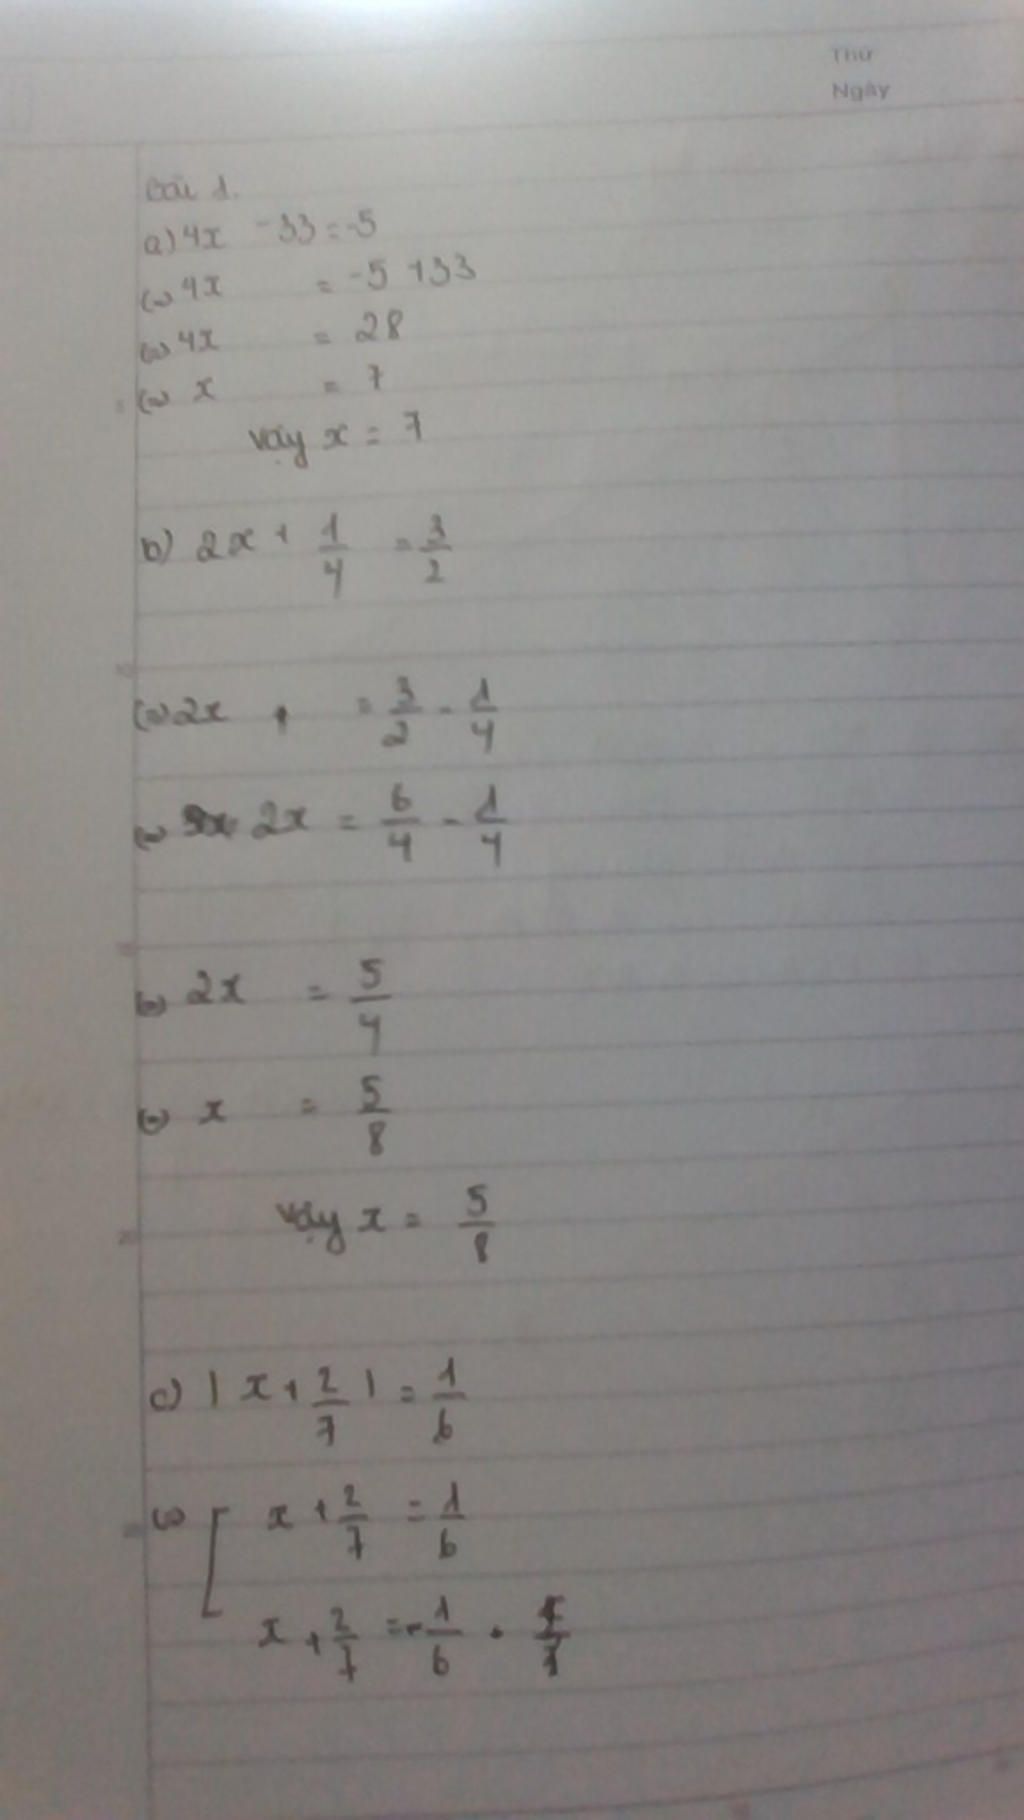 Thứ
Ngày
Bài 1.
a) 4x - 33 = -5
(=) 4x = -5 + 33
(=) 4x = 28
(=) x = 7
vậy x = 7
b) 2x + 1/4 = 3/2
(=) 2x = 3/2 - 1/4
(=) 2x = 6/4 - 1/4
(=) 2x = 5/4
(=) x = 5/8
vậy x = 5/8
c) |x + 2/7| = 1/6
(=) [ x + 2/7 = 1/6
x + 2/7 = -1/6